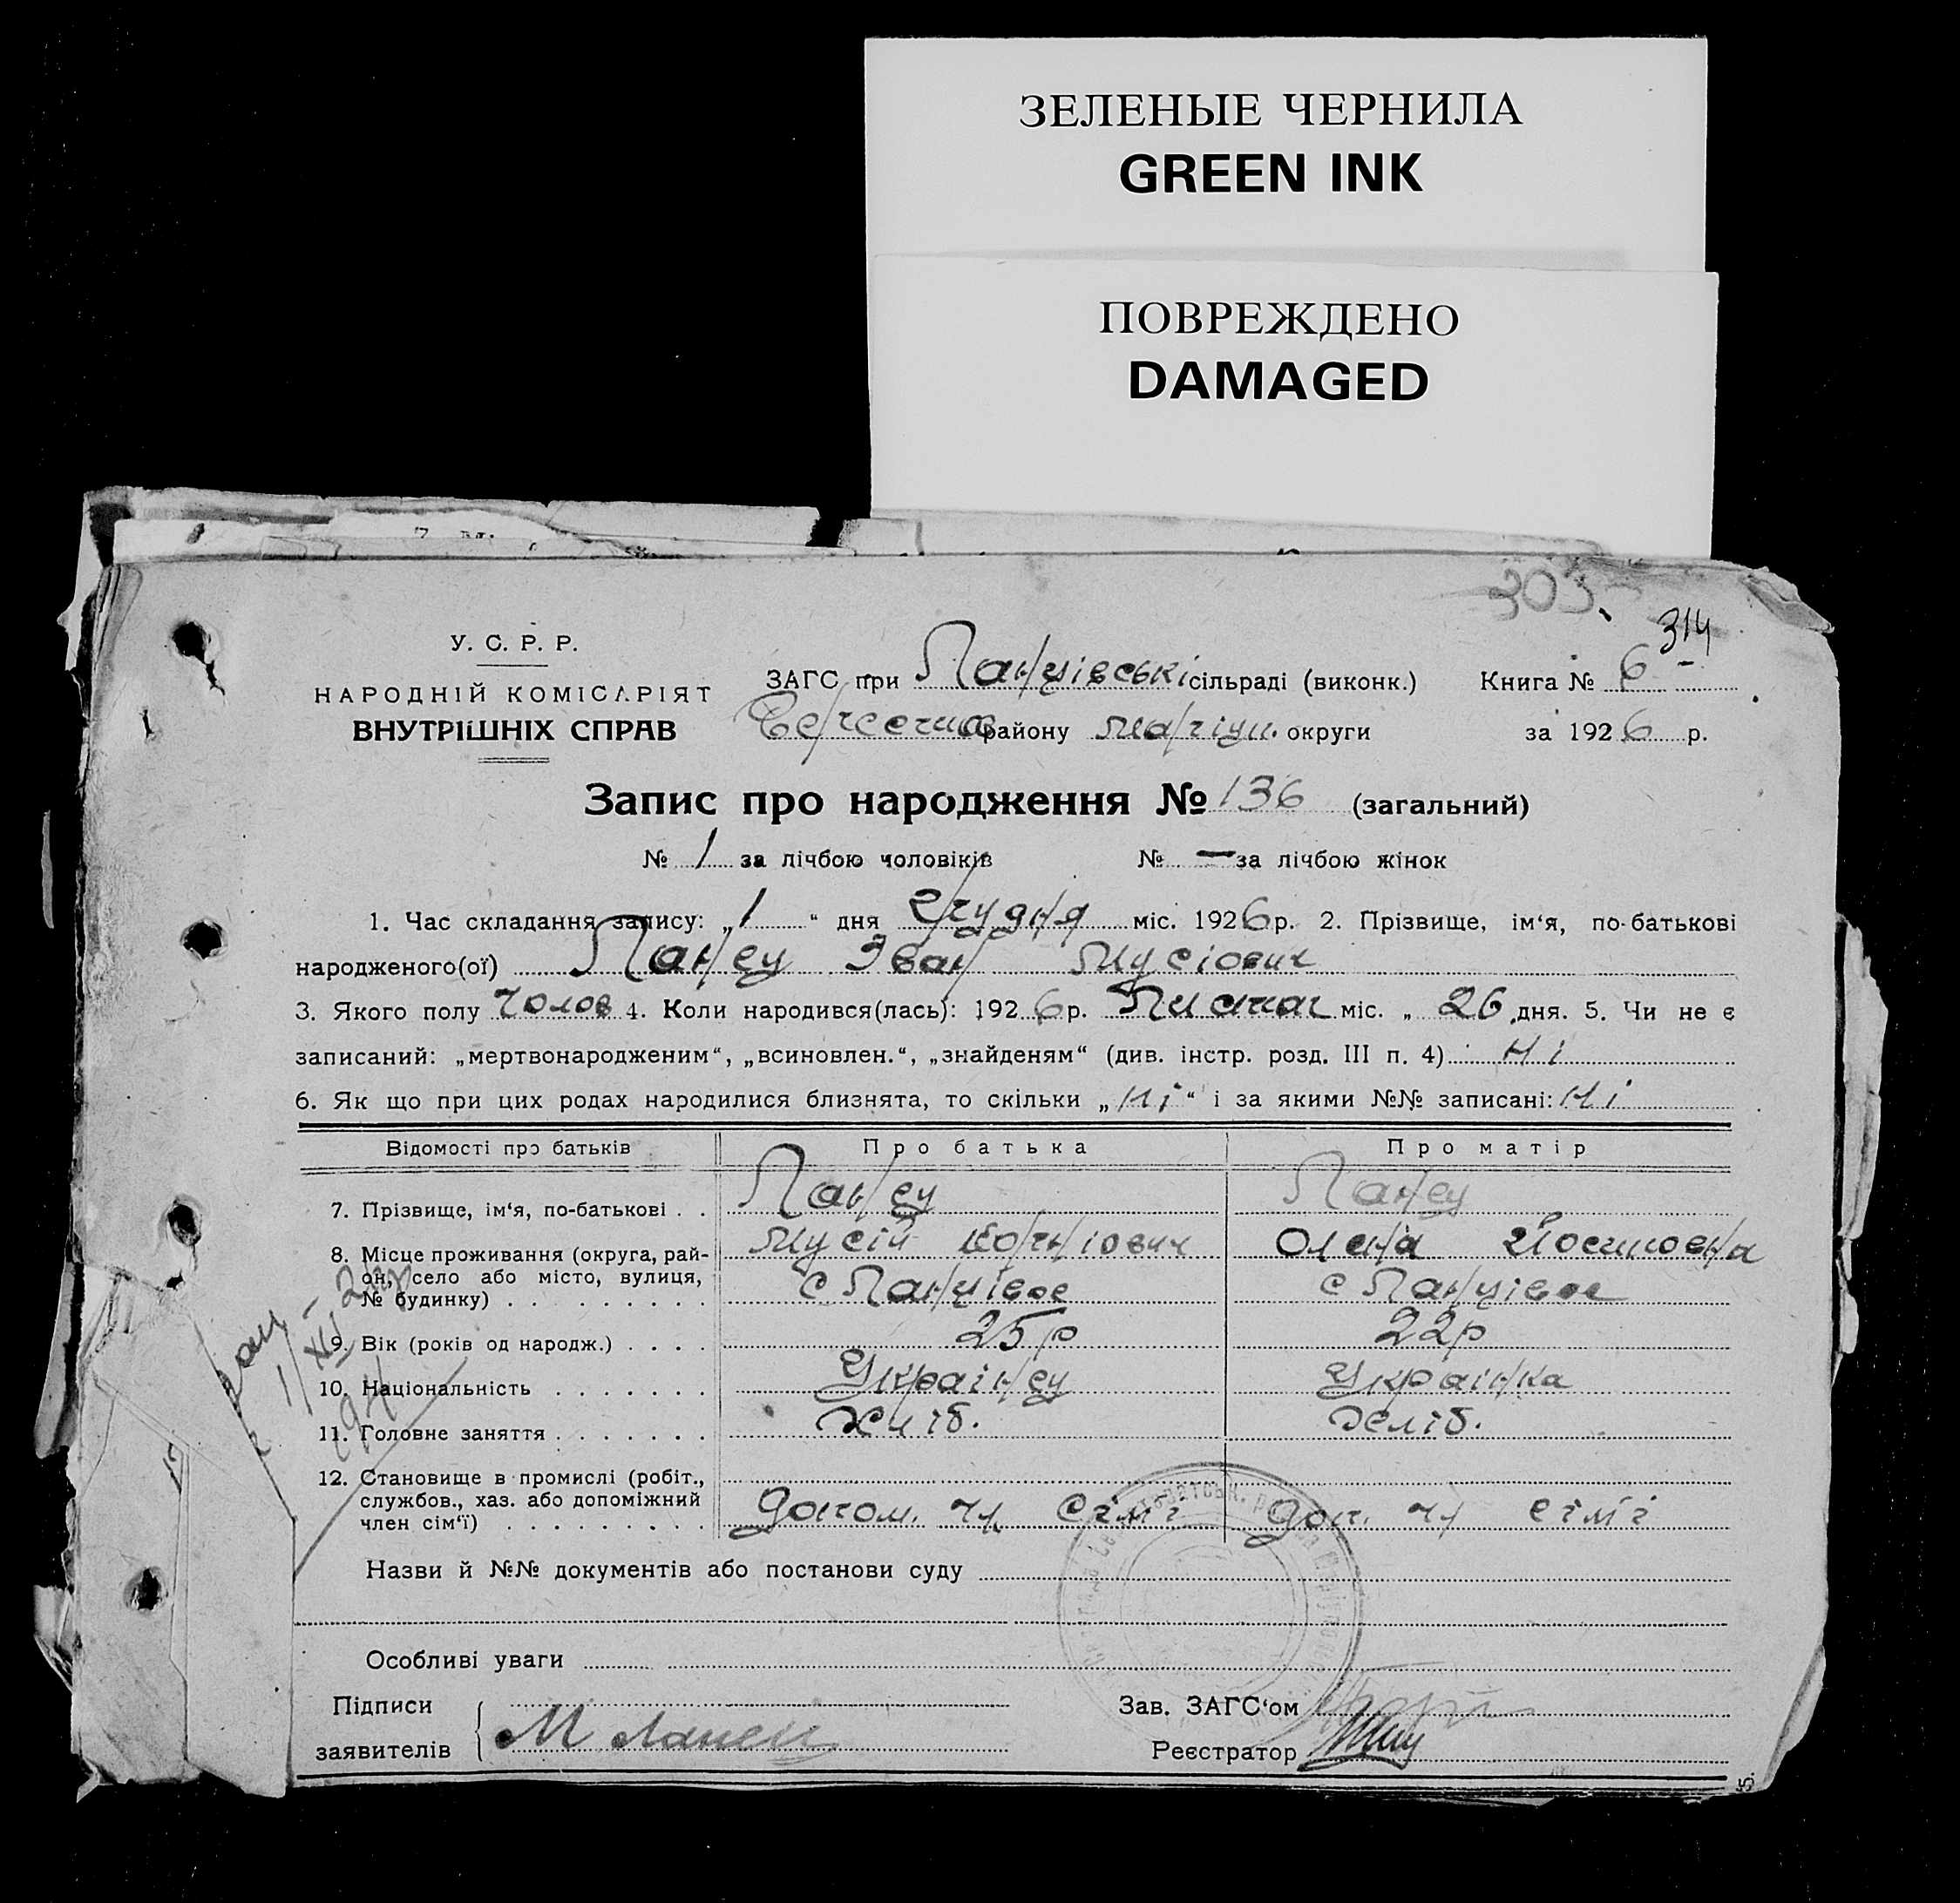 ЗЕЛЕНЫЕ ЧЕРНИЛА
GREEN INK
ПОВРЕЖДЕНО
DAMAGED
303
314
У. С. Р. Р.
НАРОДНІЙ КОМІСАРІЯТ
ВНУТРІШНІХ СПРАВ
ЗАГС при Панцівські сільраді (виконк.) Книга № 6
району округи за 1926 р.
Запис про народження № 136 (загальний)
№ 1 за лічбою чоловіків № — за лічбою жінок
1. Час складання запису: „1“ дня Грудня міс. 1926 р. 2. Прізвище, ім'я, по-батькові
народженого(ої) Панец Іван Мусіович
3. Якого полу Чолов 4. Коли народився(лась): 1926 р. міс. „ 26 дня. 5. Чи не є
записаний: „мертвонародженим“, „всиновлен.“, „знайденям“ (див. інстр. розд. III п. 4) Ні
6. Як що при цих родах народилися близнята, то скільки „Ні“ і за якими №№ записані: Ні
Відомості про батьків Про батька Про матір
7. Прізвище, ім'я, по-батькові . . Панец Панец
Мусій Корніович Олена Йосиповна
8. Місце проживання (округа, рай-
он, село або місто, вулиця,
№ будинку) . . . . . . . . . с Панцівое с Панцівое
9. Вік (років од народж.) . . . . 25р 22р
10. Національність . . . . . . . Українец Українка
11. Головне заняття . . . . . . . Хліб. Хліб.
12. Становище в промислі (робіт.,
службов., хаз. або допоміжний
член сім'ї) . . . . . . . . . допом. чл сімї доп. чл сімї
Назви й №№ документів або постанови суду
Особливі уваги
Підписи
заявителів М Панец
Зав. ЗАГС'ом
Реєстратор